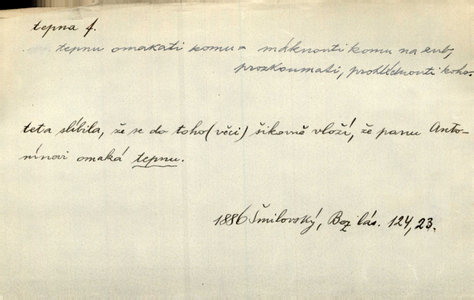 tepna f.
tepnu omakati komu = máknouti komu na zub,
prozkoumati, prohlédnouti koho.
teta slíbila, že se do toho (věci) šikovně vloží, že panu Anto-
nínovi omaká tepnu.
1886 Šmilovský, Boz lás. 124, 23.